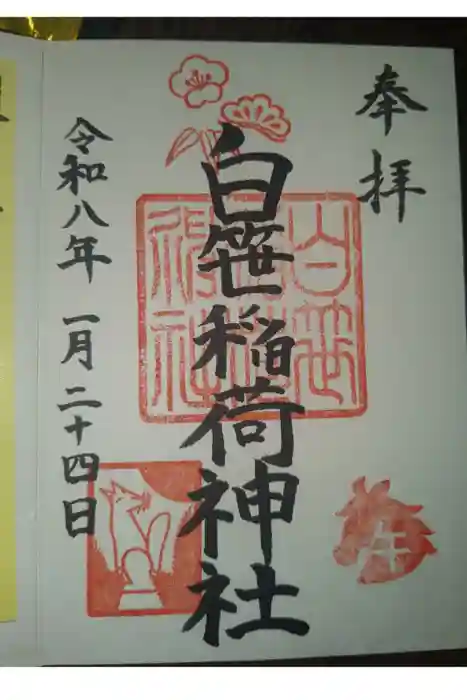 奉拝
白笹稲荷神社
令和八年 一月二十四日
白笹稲荷神社
午